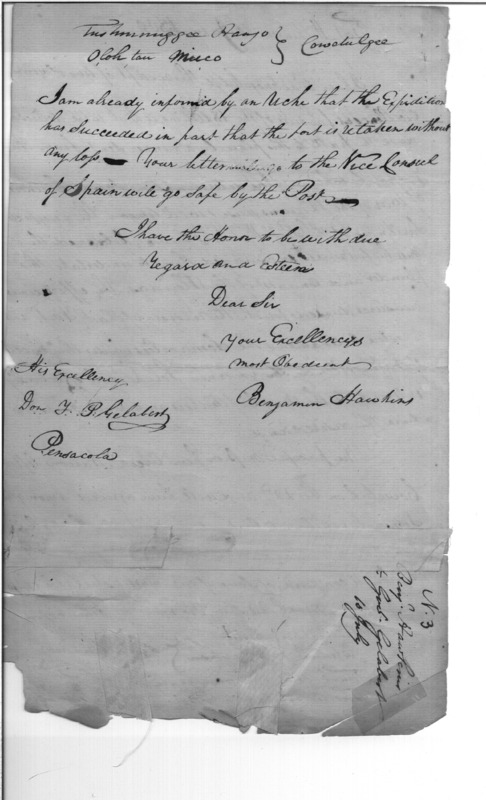 Tushmuggee Haujo } Cowetulgee
Olohtau Mico
I am already informd by an Uche that the Expidition
has succeeded in part that the Fort is retaken without
any loss — Your letter to the Vice Consul
of Spain will go safe by the Post —
I have the Honor to be with due
regard and esteem
Dear Sir
your Excellencys
most Obedient
Benjamin Hawkins
His Excellency
Don F. P. Gelabert
Pensacola
N. 3
Benj. Hawkins
& Gov. Gelabert
10 July